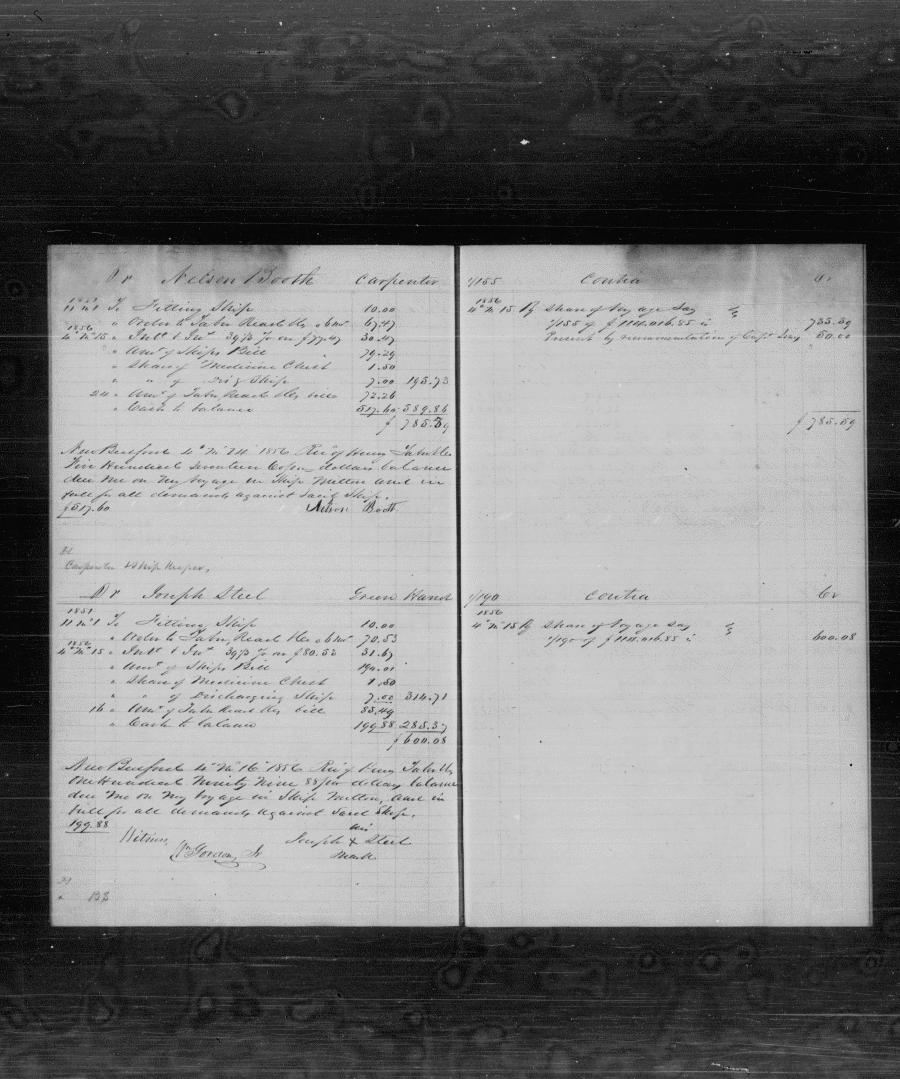 Dr Nelson Booth Carpenter 1/155 Contra Cr
1851
11 mo 1 To Fitting Ship 10.00
" Order to Taber Read & Co & bmo 67.47
1856
4 mo 15 " Int & Inc 39 1/3 % on $77.47 30.47
" Amt of Ships Bill 79.29
" Share of Medicine Chest 1.50
" " of Disg Ship 7.00 195.73
24 " Amt of Taber Read & Co bill 72.26
" Cash to balance 517.60 589.86
$785.59
1856
4 mo 15 By Share of Voyage Say
1/155 of $114.016.85 is 735.59
Present by recommendation of Capt 50.00
$785.59
New Bedford 4 mo 24 1856 Recd of Henry Taber & Co
Five Hundred Seventeen 60/100 dollars balance
due me on my voyage in Ship Milton and in
full for all demands against said Ship.
$517.60 Nelson Booth
Carpenter & Ship Keeper,
Dr Joseph Steel Green Hand 1/190 Contra Cr
1851
11 mo 1 To Fitting Ship 10.00
" Order to Taber Read & Co & bmo 70.53
1856
4 mo 15 " Int & Inc 39 1/3 % on $80.53 31.67
" Amt of Ships Bill 194.01
" Share of Medicine Chest 1.50
" " of Discharging Ship 7.00 314.71
16 " Amt of Taber Read & Co bill 85.49
" Cash to balance 199.88 285.37
$600.08
1856
4 mo 15 By Share of Voyage Say
1/190 of $114.016.85 is 600.08
New Bedford 4 mo 16 1856 Recd of Henry Taber & Co
One Hundred Ninety Nine 88/100 dollars balance
due me on my voyage in Ship Milton, and in
full for all demands against said Ship.
199.88 his
Witness Joseph X Steel
Wm Gordon Jr mark